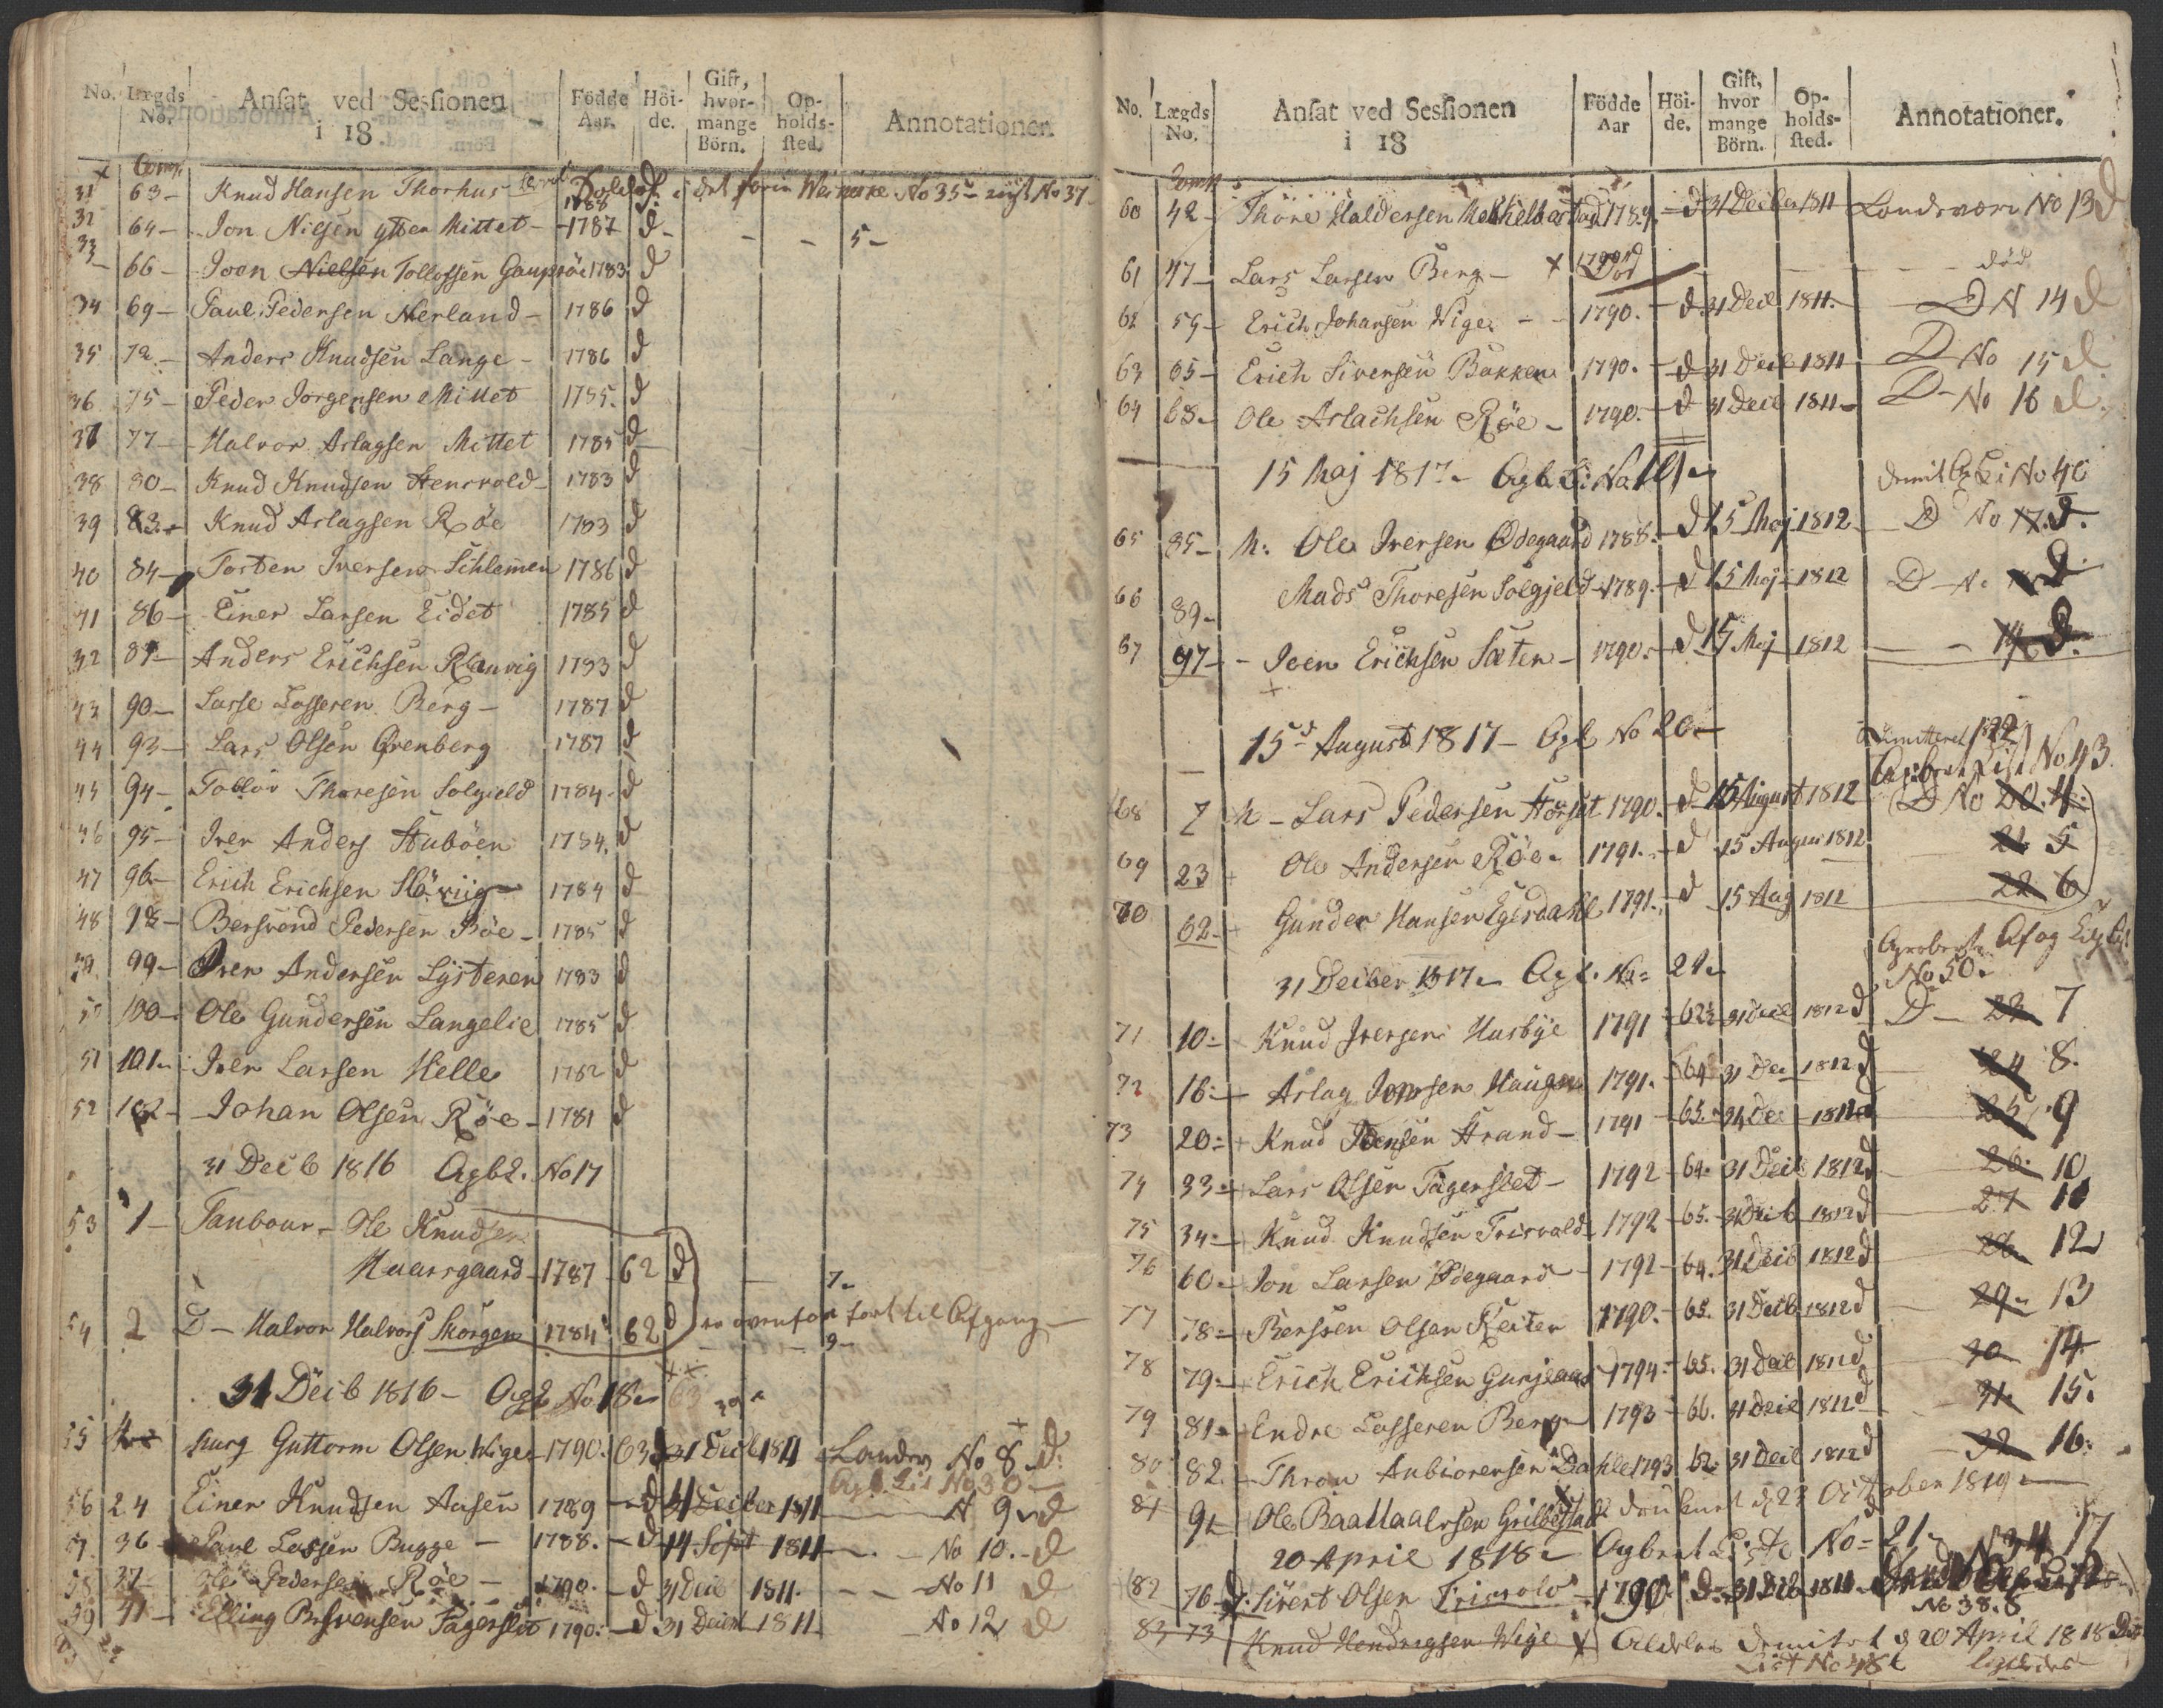 No. Lægds No. Ansat ved Sessionen i 18 Födde Aar. Höi-de. Gift, hvor-mange Börn. Op-holds-sted. Annotationer.
Comp:
31 63 - Knud Hansen Thorhus 1788 det forrige No 35 No 37
32 64 - Jon Nielsen ytter Mittet - 1787 d - - - 5 -
33 66 - Joen Nielsen Tollofsen Gauprøe 1783 d
34 69 - Paul Pedersen Nerland - 1786 d
35 72 - Anders Knudsen Lange - 1786 d
36 75 - Peder Jørgensen Mittet 1785. d
37 77 - Halvor Aslagsen Mittet 1785 d
38 80 - Knud Knudsen Hensvold - 1783 d
39 83 - Knud Aslagsen Røe 1783 d
40 84 - Torsten Iversen Schlemmen 1786 d
41 86 - Einer Larsen Eidet 1785 d
42 87 - Anders Erichsen Rauvig 1783 d
43 90 - Lasse Lassesen Berg - 1787 d
44 93 - Lars Olsen Grenberg 1787 d
45 94 - Tolløv Thoresen Solgield 1784 - d
46 95 - Iver Anders Stubøen 1784. d
47 96 - Erich Erichsen Høvig - 1784 d
48 98 - Bersvend Pedersen Bøe - 1785 d
49 99 - Iver Andersen Lysteren 1783 d
50 100 - Ole Gundersen Langelie 1785 d
51 101 - Iver Larsen Helle 1782 d
52 102 - Johan Olsen Røe - 1781 d
31 Decb 1816 Agbl. No 17
53 1 - Tambour - Ole Knudsen
Haarsgaard - 1787 - 62 d - 7 -
54 2 D - Halvor Halvors Skorgen 1784 62 d er ovenfor ført til Afgang - 9 -
31 Decb 1816 - Agbl No 18 - 63
55 4 - Korp Guttorm Olsen Wiges - 1790. 63 d 31 Decb 1811 Landev No 8 d.
Agb. Lis No 30 -
56 24 Einer Knudsen Aasen 1789 - d 31 Decber 1811 N 9 - d
57 36 Paul Lassen Bugge - 1788. - d 14 Sept 1811 - - No 10. - d
58 37 Ole Pedersen Røe - 1790. - d 31 Decb 1811. - - No 11 d
59 41 - Elling Bersvensen Fagerslet 1790. - d 31 Decb 1811 No 12 d
No. Lægds No. Ansat ved Sessionen i 18 Födde Aar Höi-de. Gift, hvor mange Börn. Op-holds-sted. Annotationer.
Comp:
60 42 - Thore Haldorsen Mekkelbostad 1789. - d 31 Decber 1811 Landeværn No 13 d
61 47 - Lars Larsen Berg - x 1790 Død - - - død
62 59 - Erich Johansen Wiger - - 1790. - d 31 Decb 1811. - D N 14 d
63 65 - Erich Siversen Bakken 1790. - d 31 Decb 1811 D No 15 d
64 68 - Ole Aslachsen Røe - 1790. - d 31 Decb 1811 - D - No 16 d.
15 Maj 1817 - Agb Li: No 19 - Demit Agb Li No 40
65 85 - M: Ole Iversen Ødegaard 1788. - d 15 Maj 1812 D No 17. d.
66 89 - Mads Thoresen Solgjeld - 1789. - d 15 Maj - 1812 D - N. d
67 97 - - Joen Erichsen Sæter - 1790. - d 15 Maj 1812 - - 19 d.
15de August 1817 - Agbl No 20 - Dimitteret 1822
Agbrets List No 43.
68 7 M - Lars Pedersen Horset 1790. - d 15 August 1812 D No 20. 4.
69 23 + Ole Andersen Røe - 1791. - d 15 August 1812 21 5
70 62 - + Gunder Hansen Egerdahl 1791. - d 15 Aug 1812 22 6
31 Decber 1817 - Agl. No = 21 - Agebrets Afg List No 50.
71 10 = Knud Iversen Husbye 1791 - 62½ 31 Decb 1812 d D - 23 7
72 16 = + Aslag Joensen Haugen 1791. - 64 31 Dec 1812 d 24 8.
73 20 = + Knud Joensen Strand - 1791 - 65. - 31 Dec - 1812 d 25 . 9
74 33 = + Lars Olsen Fagerslet - 1792 - 64. 31 Decb 1812 d 26. 10
75 34 = + Knud Knudsen Frisvold 1792 - 65. - 31 Decb 1812 d 27 11
76 60 = + Jon Larsen Ødegaard - 1792 - 64. 31 Decb 1812 d 28 12
77 78 = + Berssen Olsen Reiten 1790. - 65. 31 Decb 1812 d 29 - 13
78 79 = + Erich Erichsen Gunjeaas - 1794. - 65. 31 Decb 1812 d. 30 14.
79 81 = + Endre Lassesen Berg 1793 - 66. 31 Decb 1812 d 31. 15.
80 82. - Thron Anbiørensen Dahle 1793 62. 31 Decb 1812 d 32 16.
81 91 + Ole Baattaalfsen Grilbestad druknet d. 23 October 1819 -
20 April 1818 - Agbrets Liste No = 21 - N 34 17
82 76 d. Sivert Olsen Frisvold 1790 d - 31 Decb 1811
No 38. 8
83 73 Knud Hendrigsen Wige x Aldeles Dimitert d 20 April 1818
List No 48